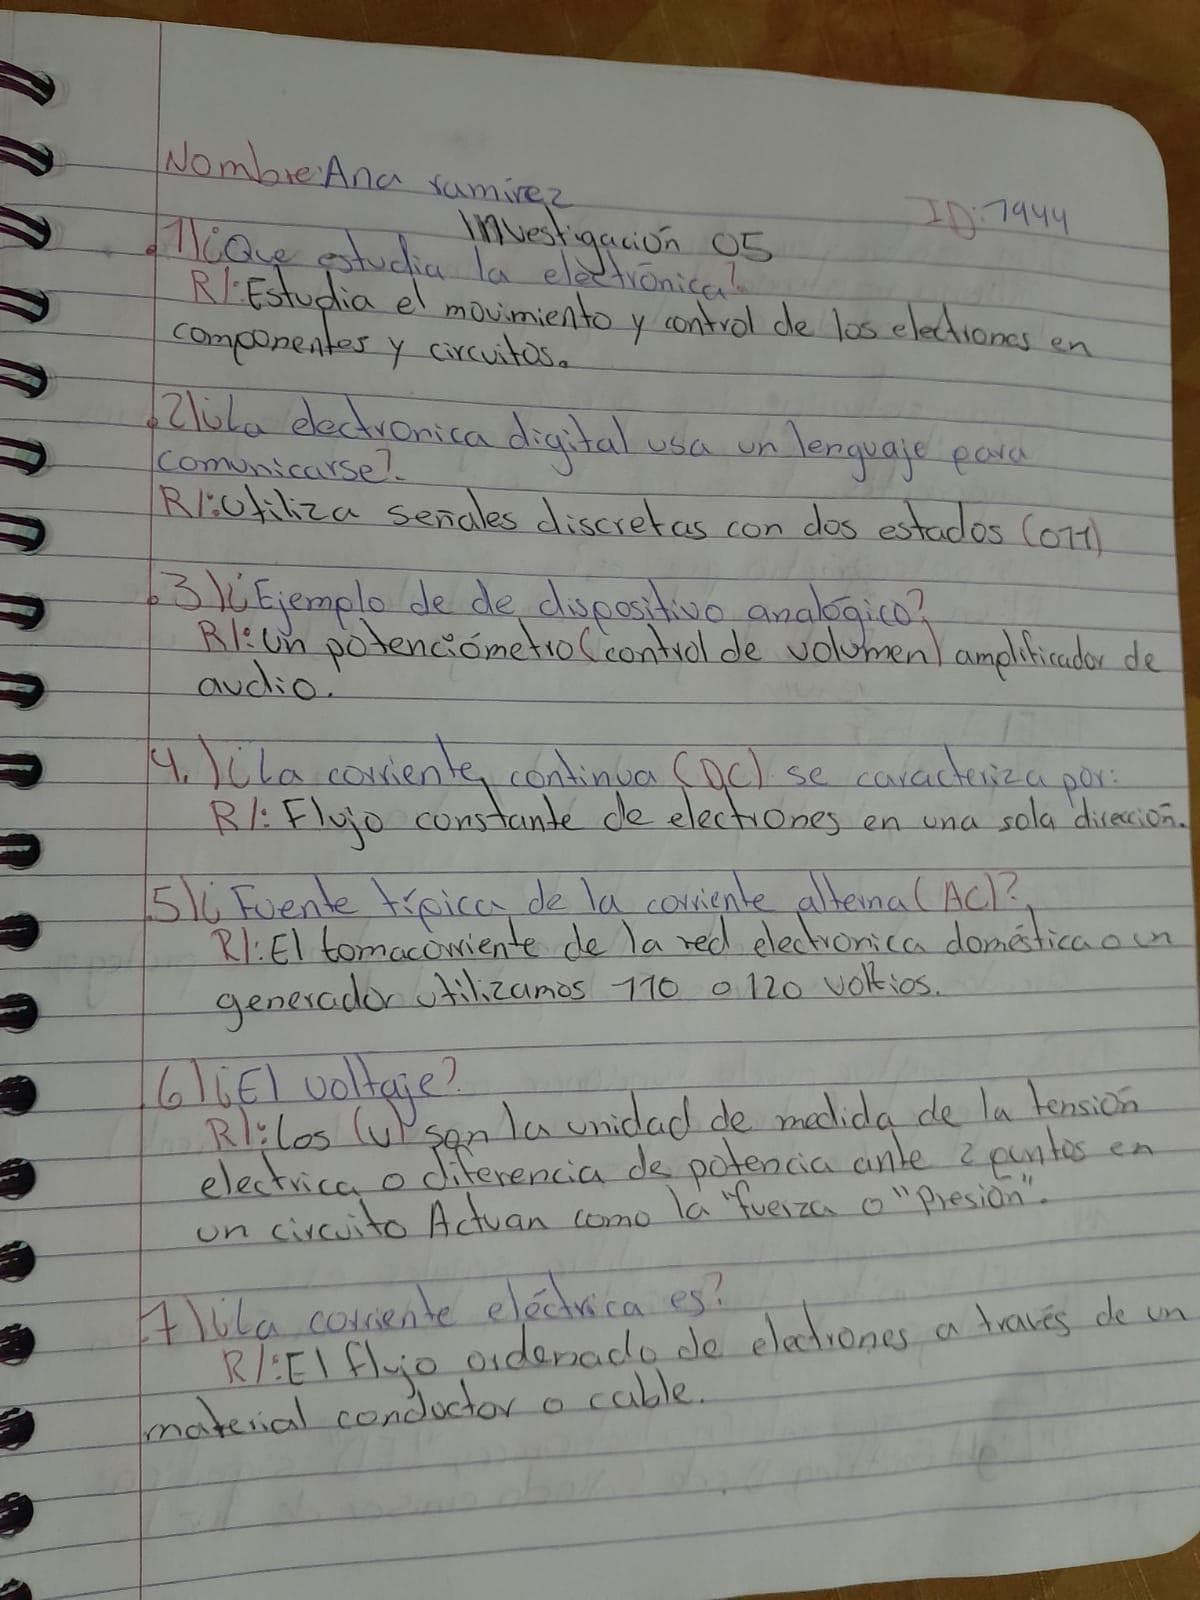 Nombre: Ana ramirez
ID: 7944
Investigación 05
1) ¿Que estudia la electrónica?
R/: Estudia el movimiento y control de los electrones en
componentes y circuitos.
2) ¿La electronica digital usa un lenguaje para
comunicarse?
R/: Utiliza señales discretas con dos estados (0 y 1)
3) ¿Ejemplo de de dispositivo analógico?
R/: Un potenciómetro (control de volumen) amplificador de
audio.
4.) ¿La corriente continua (DC) se caracteriza por:
R/: Flujo constante de electrones en una sola dirección.
5) ¿Fuente típica de la corriente alterna (AC)?
R/: El tomacorriente de la red electronica doméstica o un
generador utilizamos 110 o 120 voltios.
6) ¿El voltaje?
R/: Los (v) son la unidad de medida de la tensión
electrica o diferencia de potencia ante 2 puntos en
un circuito Actuan como la "fuerza o "Presión".
7) ¿La corriente eléctrica es?
R/: El flujo ordenado de electrones a través de un
material conductor o cable.